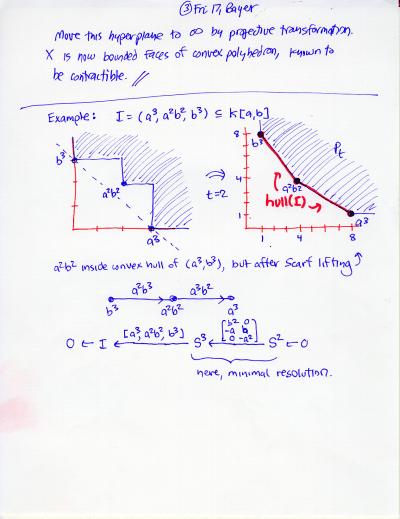 ③ Fri 17, Bayer
Move this hyperplane to ∞ by projective transformation.
X is now bounded faces of convex polyhedron, known to
be contractible. //
Example: I = (a³, a²b², b³) ⊆ k[a,b]
b³
a²b²
a³
t=2
8
4
1
b³
a²b²
hull(I)
P_t
a³
1 4 8
a²b² inside convex hull of (a³,b³), but after Scarf lifting ↗
a²b³ a³b²
b³ a²b² a³
0 ← I ← [a³, a²b², b³] S³ ← [b² 0 / -a b / 0 -a²] S² ← 0
here, minimal resolution.